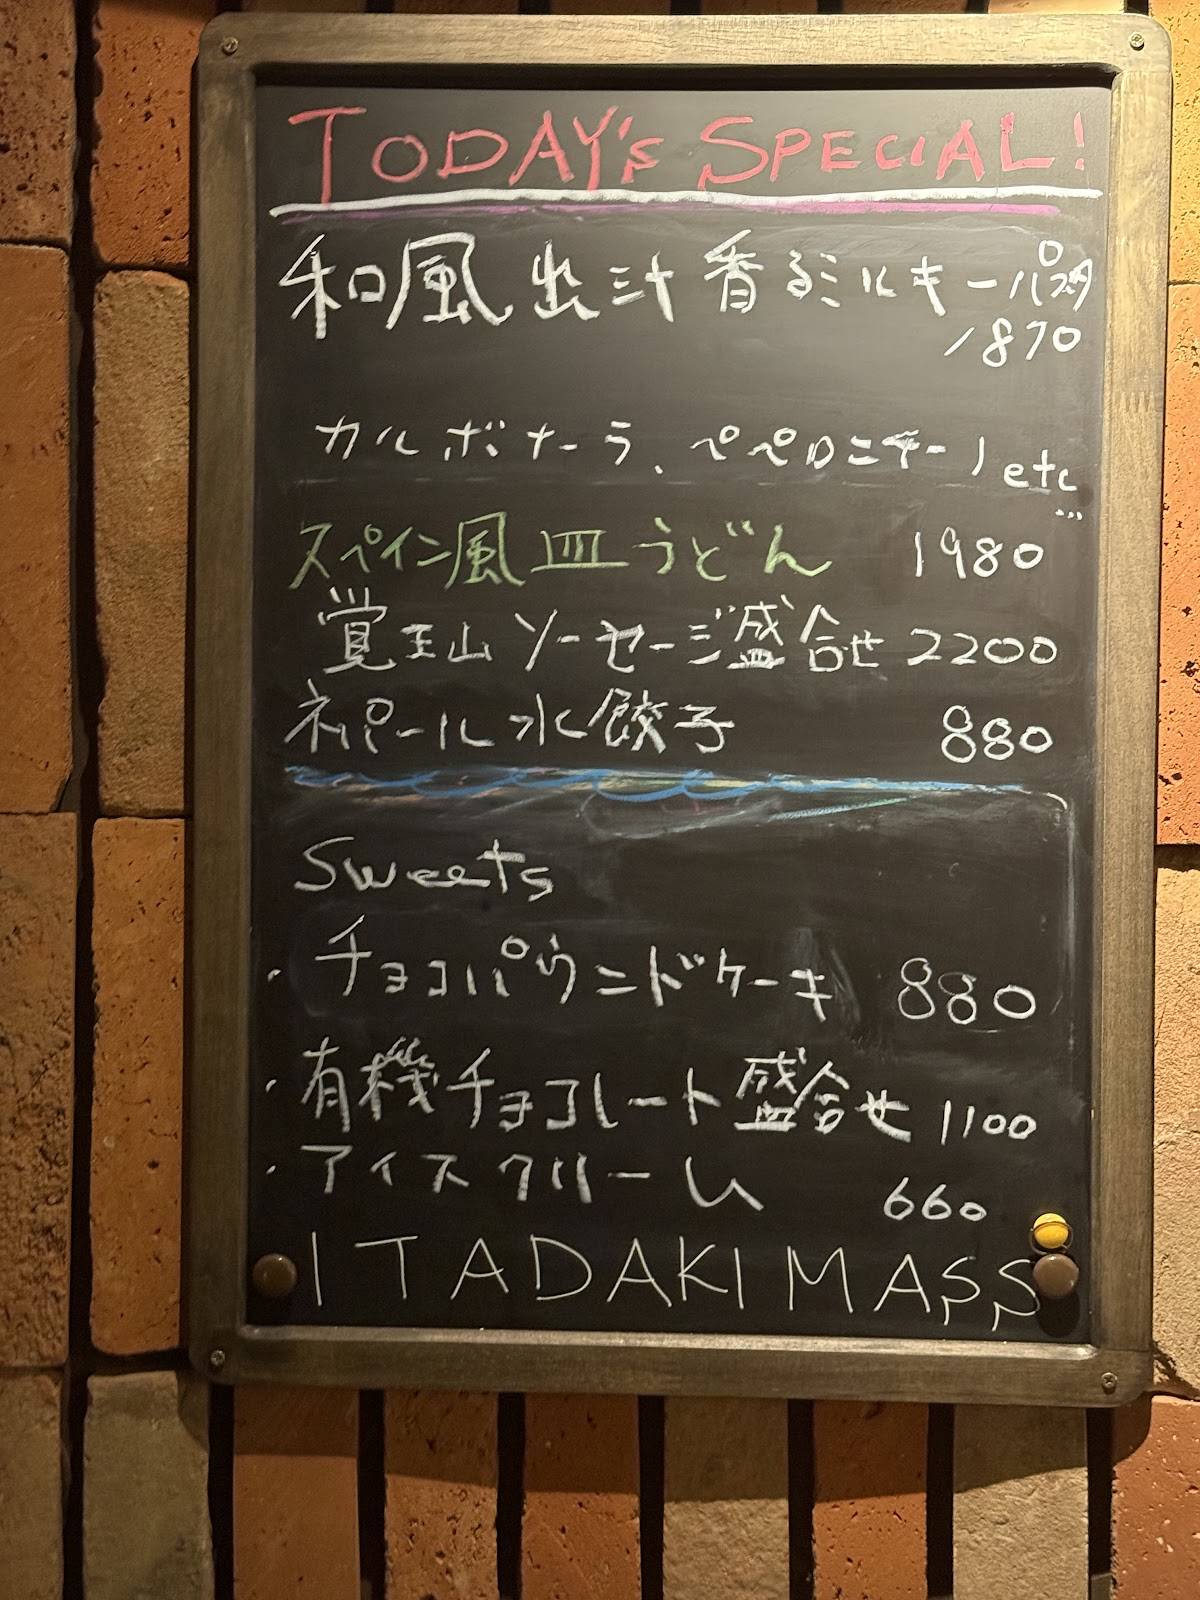 TODAY'S SPECIAL!
和風出汁香るミルキーパスタ
1870
カルボナーラ、ペペロニチーノ etc...
スペイン風皿うどん 1980
覚王山ソーセージ盛合せ 2200
ネパール水餃子 880
Sweets
・チョコパウンドケーキ 880
・有機チョコレート盛合せ 1100
・アイスクリーム 660
ITADAKIMASS